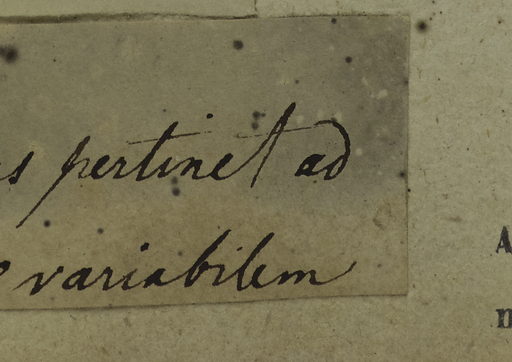 s pertinet ad
variabilem
A
n